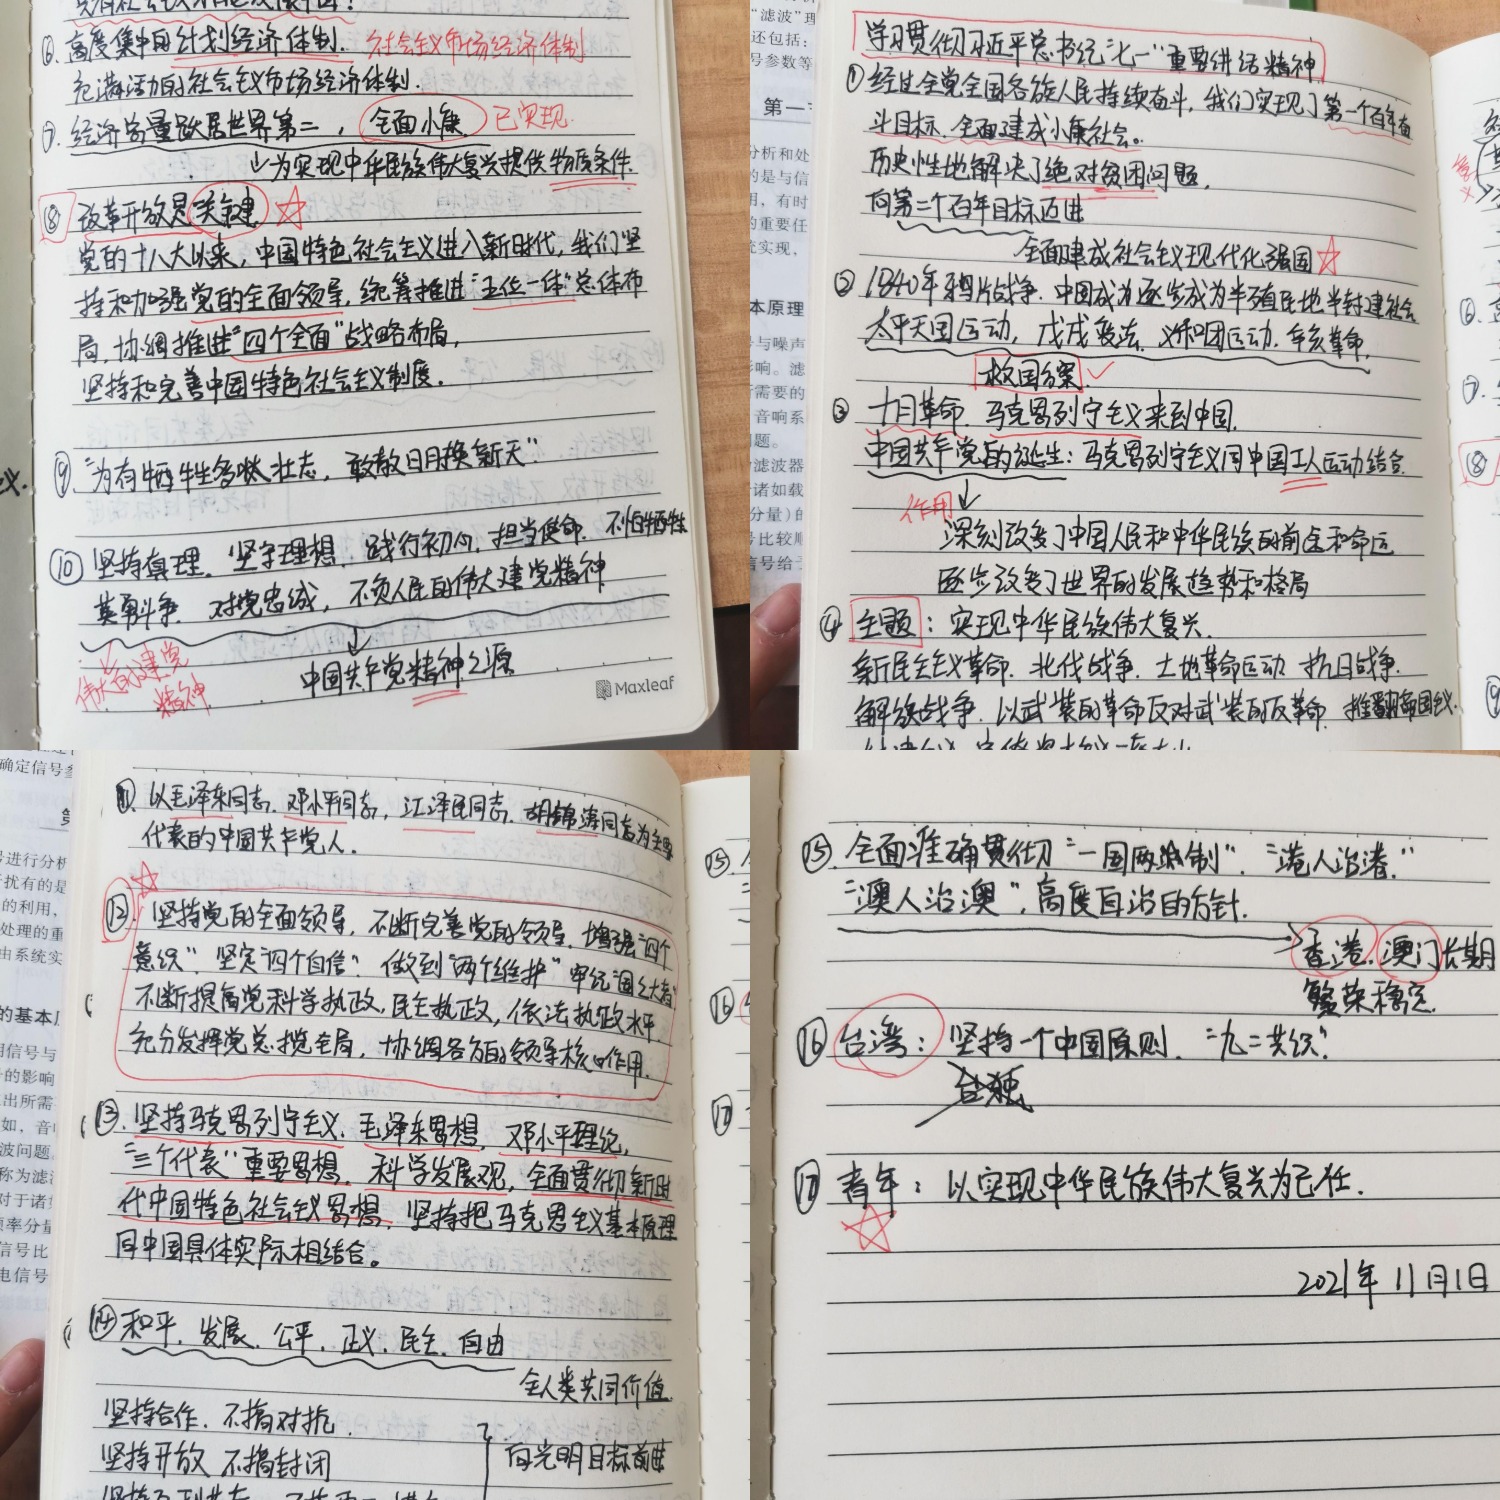 ⑥ 高度集中的计划经济体制. 社会主义市场经济体制
充满活力的社会主义市场经济体制.
⑦ 经济总量跃居世界第二，全面小康. 已实现.
↓为实现中华民族伟大复兴提供物质条件.
⑧ 改革开放是关键 ☆
党的十八大以来，中国特色社会主义进入新时代，我们坚
持和加强党的全面领导，统筹推进"五位一体"总体布
局，协调推进"四个全面"战略布局，
坚持和完善中国特色社会主义制度.
⑨ "为有牺牲多壮志，敢教日月换新天"
⑩ 坚持真理. 坚守理想. 践行初心. 担当使命. 不怕牺牲
英勇斗争. 对党忠诚，不负人民的伟大建党精神
伟大的建党
精神
中国共产党精神之源
Maxleaf
学习贯彻习近平总书记"七一"重要讲话精神
① 经过全党全国各族人民持续奋斗，我们实现了第一个百年奋
斗目标. 全面建成小康社会.
历史性地解决了绝对贫困问题，
向第二个百年目标迈进
全面建成社会主义现代化强国☆
② 1840年鸦片战争. 中国成为逐步成为半殖民地半封建社会
太平天国运动，戊戌变法. 义和团运动. 辛亥革命.
救国方案 ✓
③ 十月革命. 马克思列宁主义来到中国.
中国共产党的诞生：马克思列宁主义同中国工人运动结合.
作用 ↓
深刻改变了中国人民和中华民族的前途和命运
逐步改变了世界的发展趋势和格局
④ 主题：实现中华民族伟大复兴.
新民主主义革命. 北伐战争. 土地革命运动 抗日战争.
解放战争. 以武装的革命反对武装的反革命. 推翻帝国主义.
⑪. 以毛泽东同志. 邓小平同志，江泽民同志. 胡锦涛同志为主要
代表的中国共产党人.
☆
⑫. 坚持党的全面领导，不断完善党的领导. 增强"四个
意识" 坚定"四个自信" 做到"两个维护" 牢记"国之大者"
不断提高党科学执政，民主执政，依法执政水平.
充分发挥党总揽全局，协调各方的领导核心作用.
⑬. 坚持马克思列宁主义、毛泽东思想，邓小平理论，
"三个代表"重要思想. 科学发展观，全面贯彻新时
代中国特色社会主义思想. 坚持把马克思主义基本原理
同中国具体实际相结合。
⑭ 和平. 发展. 公平. 正义. 民主. 自由
全人类共同价值.
坚持合作. 不搞对抗.
坚持开放 不搞封闭
向光明目标前进
⑮ 全面准确贯彻"一国两制". "港人治港."
"澳人治澳". 高度自治的方针.
香港. 澳门长期
繁荣稳定.
⑯ 台湾：坚持一个中国原则. "九二共识".
台独
⑰ 青年：以实现中华民族伟大复兴为己任.
☆
2021年11月1日